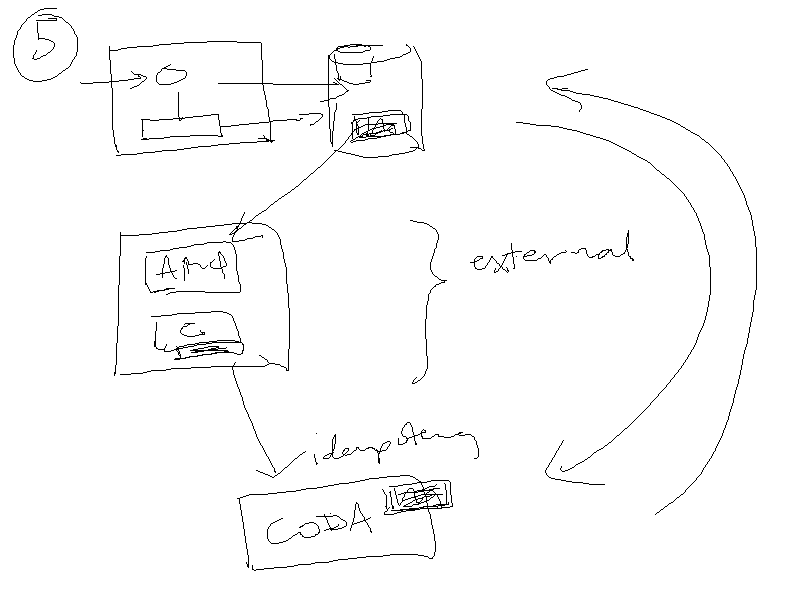 5
external
C
idempotency
CODA